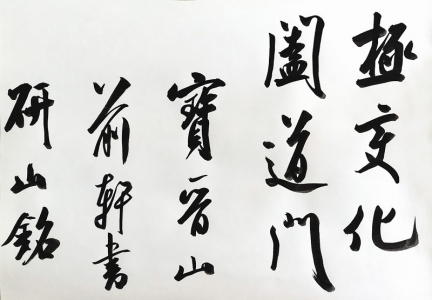 極變化
闔道門
寶晉山
前軒書
研山銘